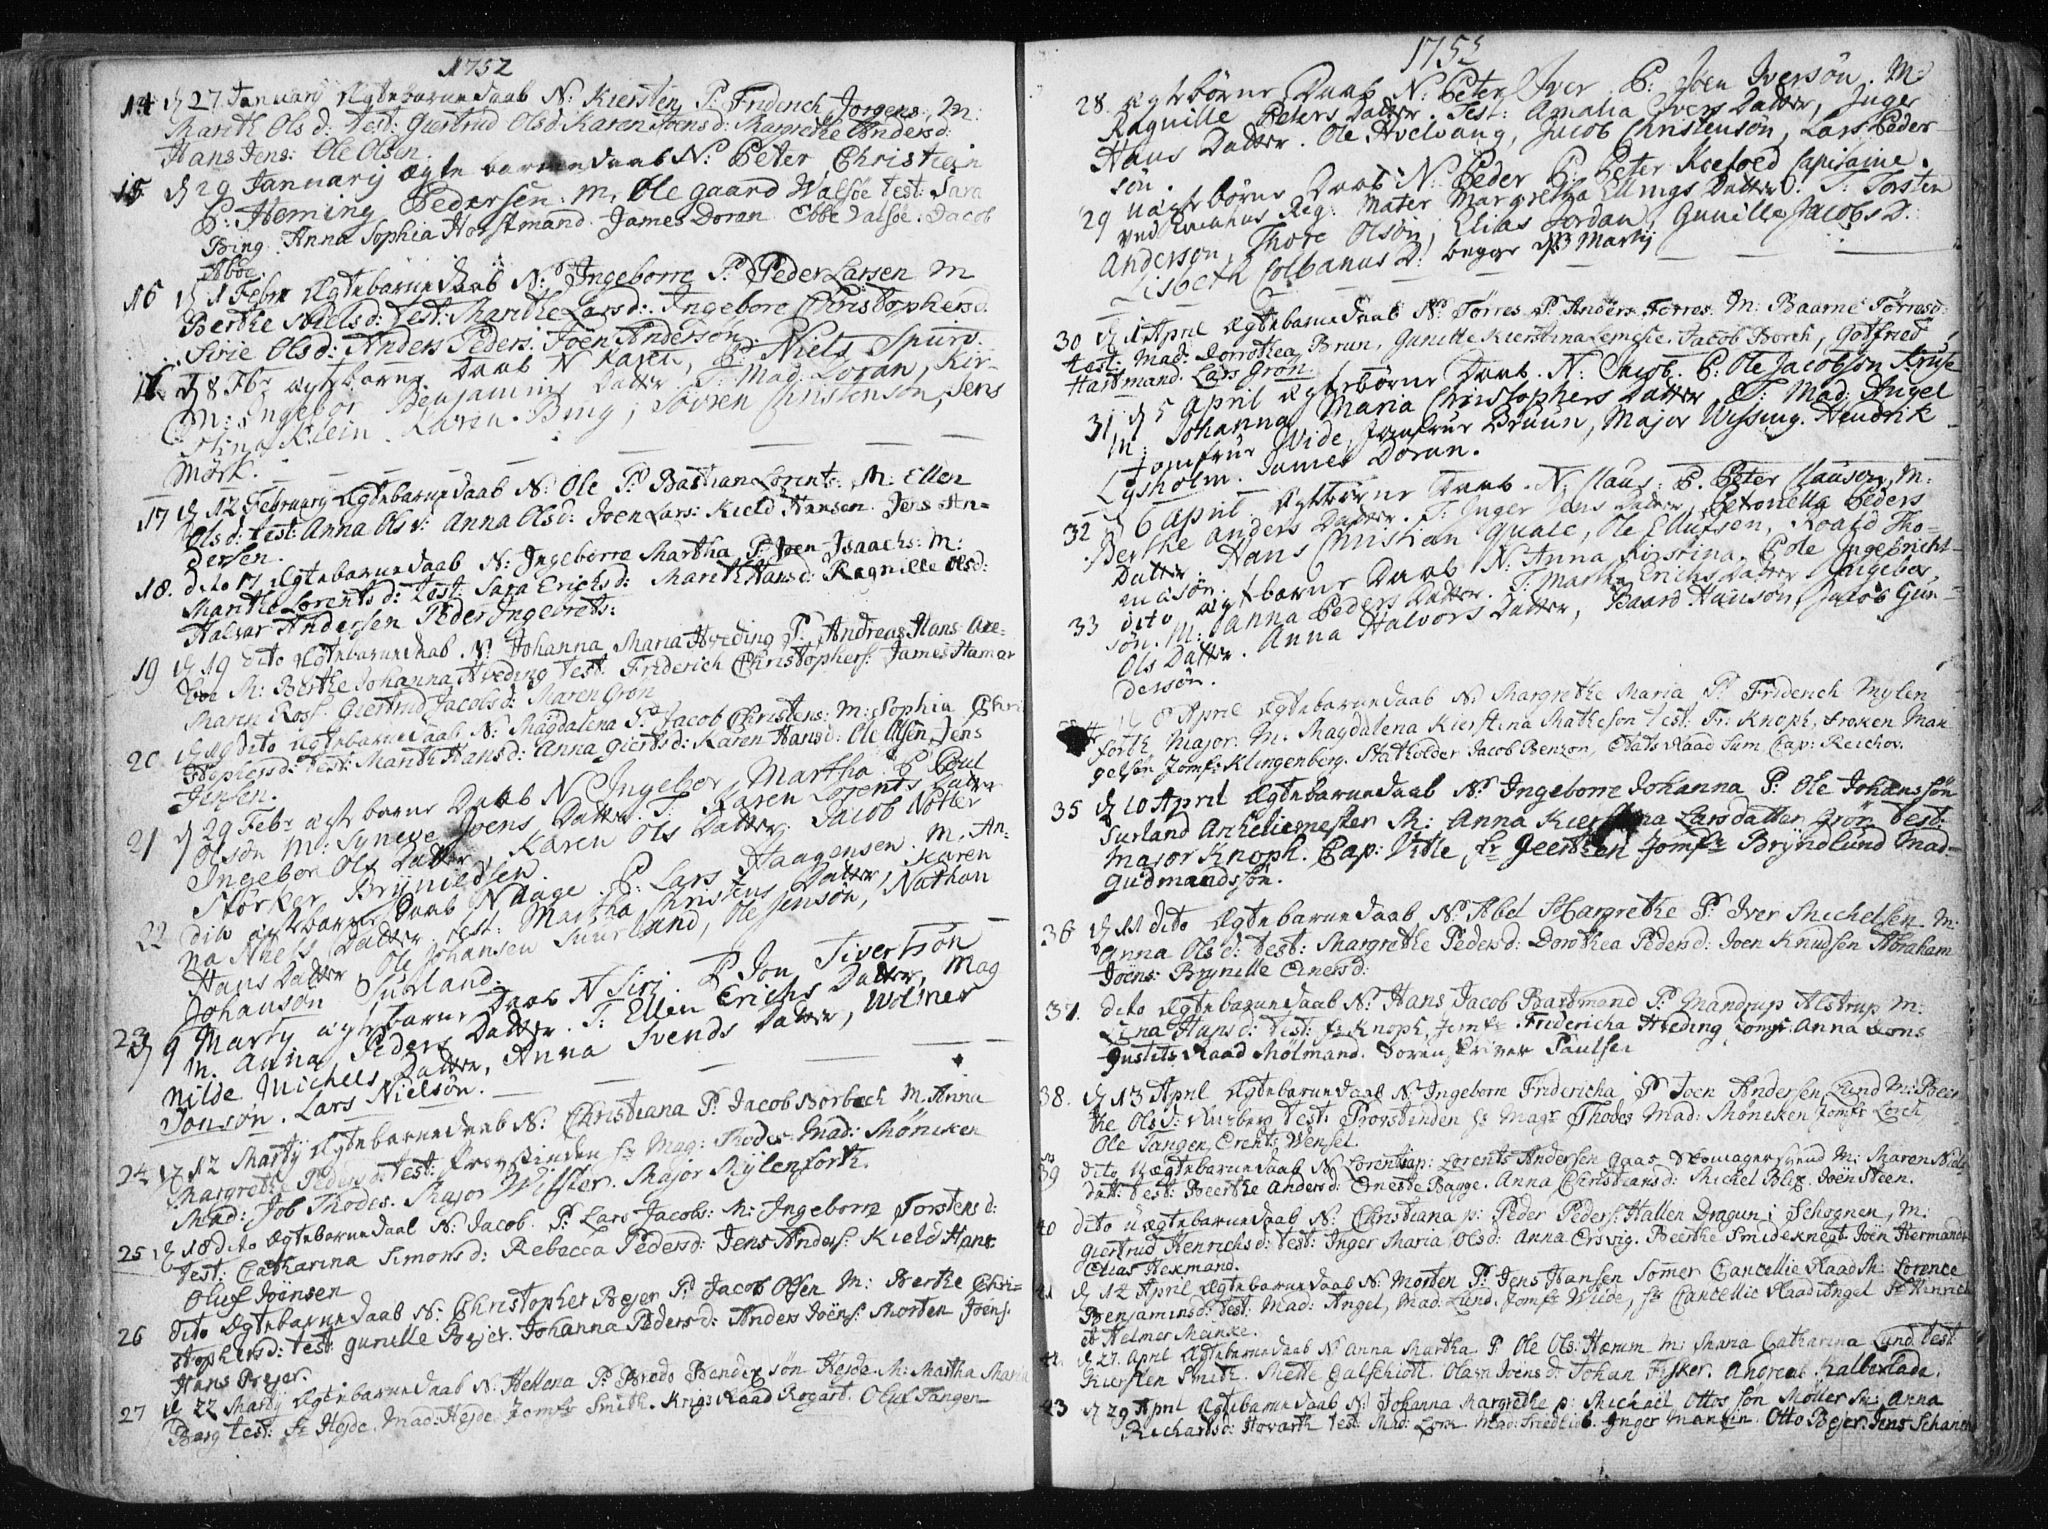 1752
14 d 27. January Ægtebarnedaab N: Kiersten P: Friderich Jorgens: M:
Marith Olsd: test: Giertrud Olsd Karen Joensd: Margrethe Andersd:
Hans Jens: Ole Olsen.
15 d 29 January Ægte barnedaab N: Peter Christian
P: Heming Pedersen. M. Ole gaard Walsøe test: Sara
Bing. Anna Sophia Horstmand. James Doran. Ebbe Valsøe. Jacob
Aboe.
16 d 1 Febr Ægtebarnedaab N: Ingeborre P: Peder Larsen M
Berthe Nielsd: test: Marithe Larsd: Ingebore Christophersd:
Sirie Olsd: Anders Peders: Joen Anderson.
d 8 Fbr ægtebarne Daab N Karen, P: Niels Spurs.
M: Ingebor Benjamins Datter, T: Mad. Loran, Kir-
stina Klein. Karen Bing, Søvren Christenson, Jens
Mørk.
17 d 12 February Ægtebarnedaab N: Ole P: Bastian Lorents: M: Ellen
Olsd: test: Anna Olsd: Anna Olsd: Joen Lars: Kield Hansen. Jens An-
dersen.
18. dito 17 Ægtebarnedaab N: Ingeborre Martha P: Joen Isaachs: M:
Marithe Lorentsd: test: Sara Erichsd: Marith Hansd: Ragnille Olsd:
Halvar Andersen Peder Ingebrets:
19 d 19 dito Ægtebarnedaab N: Johanna Maria Hveding P: Andreas Hans
M: Berthe Johanna Hveding test: Friderich Christophers: James Hamar
Maren Ross. Giertrud Jacobsd: Maren Grøn
20 dito Ægtebarnedaab N: Magdalena P: Jacob Christens: M: Sophia Chri
stophersd: test: Marith Hansd: Anna Giertsd: Karen Hansd: Ole Olsen, Jens
Jensen.
21 d 29 Febr ægtebarne Daab N Ingebor Martha P Poul
Olsøn M: Syneve Joens Datter. T: Karen Lorents Datter
Ingebor Ols Datter, Karen Ols Datter, Jacob Nøtler
Størker Bryniedsen.
22 dito ægtbarne Daab N Aage. P: Lars Haagensen. M. An-
na Niels Datter, test: Martha Christens Datter, Karen
Hans Datter Ole Johansen Suurland, Ole Jensøn, Nathan
Johansøn Suurland.
23 d 9 Marty ægtebarne Daab N Siri. P Jon Sivertsøn
M. Anna Peders Datter. T: Ellen Erichs Datter, Mag
nilde Michels Datter, Anna Svends Datter, Wolner
Jonsøn. Lars Nielsøn.
24 d 12 Marty Ægtebarnedaab N: Christiana P: Jacob Borbech M. Anna
Margrethe Pedersd: test: Provstinden fr Mag: Thodes. Mad: Møniken
Mad: Job Thodes. Major Wisler. Major Mylenforth.
25 d 18 dito Ægtebarnedaab N: Jacob. P: Lars Jacobs: M: Ingeborn Torstensd:
test: Catharina Simonsd: Rebecca Pedersd: Jens Anders: Kield Hans:
Oluf Joensen
26 dito Ægtebarnedaab N: Christopher Bejer P: Jacob Olsen M: Berthe Chri-
stophersd: test: Gunille Bejer. Johanna Pedersd: Anders Joens: Morten Joens:
Hans Brejer.
27 d 22 Marty Ægtebarnedaab N: Hellena P: Bredo Bendexsøn Hejde M: Martha Maria
Berg test: Fr Hejde. Mad: Hejde. Jomfr Smith. Krigs Raad Rogart. Oluf Tangen
1752
28. Ægtebørne Daab N: Peter Iver P: Joen Iversøn. M:
Ragnille Peters Datter. Test: Amalia Ivers Datter, Inger
Hans Datter. Ole Hvelvang, Jacob Christensøn, Lars Peder-
søn.
29 Uægtebørne Daab N: Peder P: Peter Koefoed Capitaine.
ved Reg: Mater Margretha Ellings Datter. T: Torsten
Anderson, Thore Olsøn, Elias Jordan, Gunille Jacobs D.
Lisbeth Colbanus D: begge d 13 Marty
30 d 1 April Ægtebarnedaab N: Tørres P: Anders Torres: M: Baarne Tørresd:
test: Mad: Dorrothea Brun, Gunille Kierstina Lemche. Jacob Borch, Gotfried
Hartmand. Lars Grøn.
31 d 5 April Ægtebørne Daab. N: Jacob. P: Ole Jacobsøn Kruse
M: Johanna Maria Christophers Datter. T: Mad: Angel
Jomfrue Wide, Jomfrue Bruun, Major Wissing. Hendrik
Lysholm. James Doran.
32 d 6 April. Ægtebørne Daab. N: Claus: P. Peter Clausøn, M:
Berthe Anders Datter. T: Inger Jens Datter, Petronella Peders
Datter. Hans Christian Quale, Ole Ellufsøn, Roald Tho-
masøn.
33 dito Ægtebarne Daab N: Anna Kirstina. P Ole Ingebricht-
søn. M: Janna Peders Datter. T: Martha Erichs Datter Ingebor,
Ols Datter. Anna Halvors Datter, Baard Hansøn, Jacob Gun-
dersøn.
April Ægtebarnedaab N: Margrethe Maria P: Friderich Mylen
forth Major. M. Magdalena Kierstina Matheson test: Fr: Knoph, Frøken Man
gelsøn Jomfr Klingenberg. Statholder Jacob Benzon, Etats Raad Sum, Cap: Reichov.
35 d 10 April Ægtebarnedaab N: Ingeborre Johanna P: Ole Johansøn
Surland Archeliemester M: Anna Kierstina Larsdatter Grøn test:
Major Knoph. Cap: Vitle, fr Geertsen Jomfr Bryndlund Mad-
Gudmandsøn.
36 d 11 dito Ægtebarnedaab N: Abel Margrethe P: Iver Michelsen M:
Anna Olsd: test: Margrethe Pedersd: Dorothea Pedersd: Joen Knudsen Abraham
Joens: Brynille Einersd:
37. dito Ægtebarnedaab N: Hans Jacob Bartmand P: Mandrup Alstrup M:
Lena Hansd: test: fr Knoph, Jomfr Fridericha Hveding, Jomfr. Anna
Justits Raad Mølmand. Soren Paulsen
38. d 13 April Ægtebarnedaab N: Ingeborn Fridericha P: Joen Andersen Lund M: Beer
the Olsd: test: Provstinden fr Magr Thodes Mad: Møniken Jomfr Lorch
Ole Tangen, Erent: Wensel.
39 dito Uægtebarnedaab N: Lorentsap: Lorents Andersen Gaas Skomagersvend M: Maren Niels
datt: test: Beerthe Andersd: Erneste Bagge. Anna Christiansd: Michel Blix. Joen Steen.
40 dito Uægtebarnedaab N: Christiana p: Peder Peders: Hallen Dragun i Schognen, M:
Giertrud Henrichsd: test: Inger Maria Olsd: Anna Ersvig. Beerthe Smideknegt Joen Hermands
Elias Hexmand.
41 d 12 April Ægtebarnedaab N: Morten P: Jens Hansen Sommer Cancellie Raad M: Lorence
Benjaminsd: test: Mad: Angel, Mad: Lund. Jomfr Wilde, Sr Cancellie Raad Angel Sr Hinrich
et Helmer Meinke.
42. d 27. April Ægtebarnedaab N: Anna Martha P: Ole Ols: Hæmm M: Maria Catharina Lund test
Kiersten Smith. Mette Galschiøtt. Olava Joensd: Johan Fisker. Andreas Kalberlada.
43 d 29 April Ægtebarnedaab N: Johanna Margrethe p: Michael Ottossøn Møller M: Anna
Richardsd: Hovarth test: Mad: Lorck Mad: Friedlieb. Inger Hansen. Otto Bejer. Jens Schancke